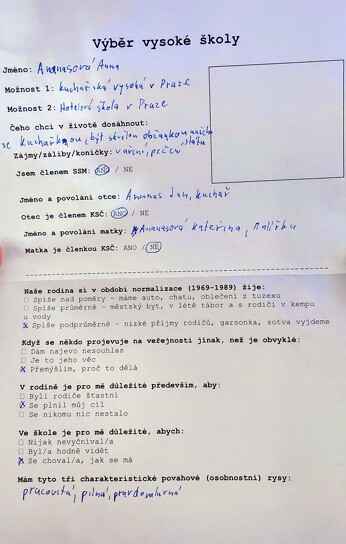 Výběr vysoké školy
Jméno: Ananasová Anna
Možnost 1: kuchařská vysoká v Praze
Možnost 2: Hotelová škola v Praze
Čeho chci v životě dosáhnout:
se kuchařkou, být skvělou občankou našeho
státu
Zájmy/záliby/koníčky: vaření, pečení
Jsem členem SSM: ANO / NE
Jméno a povolání otce: Ananas Jan, kuchař
Otec je členem KSČ: ANO / NE
Jméno a povolání matky: Ananasová Kateřina,
Matka je členkou KSČ: ANO / NE
Naše rodina si v období normalizace (1969-1989) žije:
□ Spíše nad poměry - máme auto, chatu, oblečení z tuzexu
□ Spíše průměrně - městský byt, v létě tábor a s rodiči v kempu
u vody
x Spíše podprůměrně - nízké příjmy rodičů, garsonka, sotva vyjdeme
Když se někdo projevuje na veřejnosti jinak, než je obvyklé:
□ Dám najevo nesouhlas
□ Je to jeho věc
x Přemýšlím, proč to dělá
V rodině je pro mě důležité především, aby:
□ Byli rodiče šťastní
x Se plnil můj cíl
□ Se nikomu nic nestalo
Ve škole je pro mě důležité, abych:
□ Nijak nevyčníval/a
□ Byl/a hodně vidět
x Se choval/a, jak se má
Mám tyto tři charakteristické povahové (osobnostní) rysy:
pracovitá, pilná, pravdomluvná